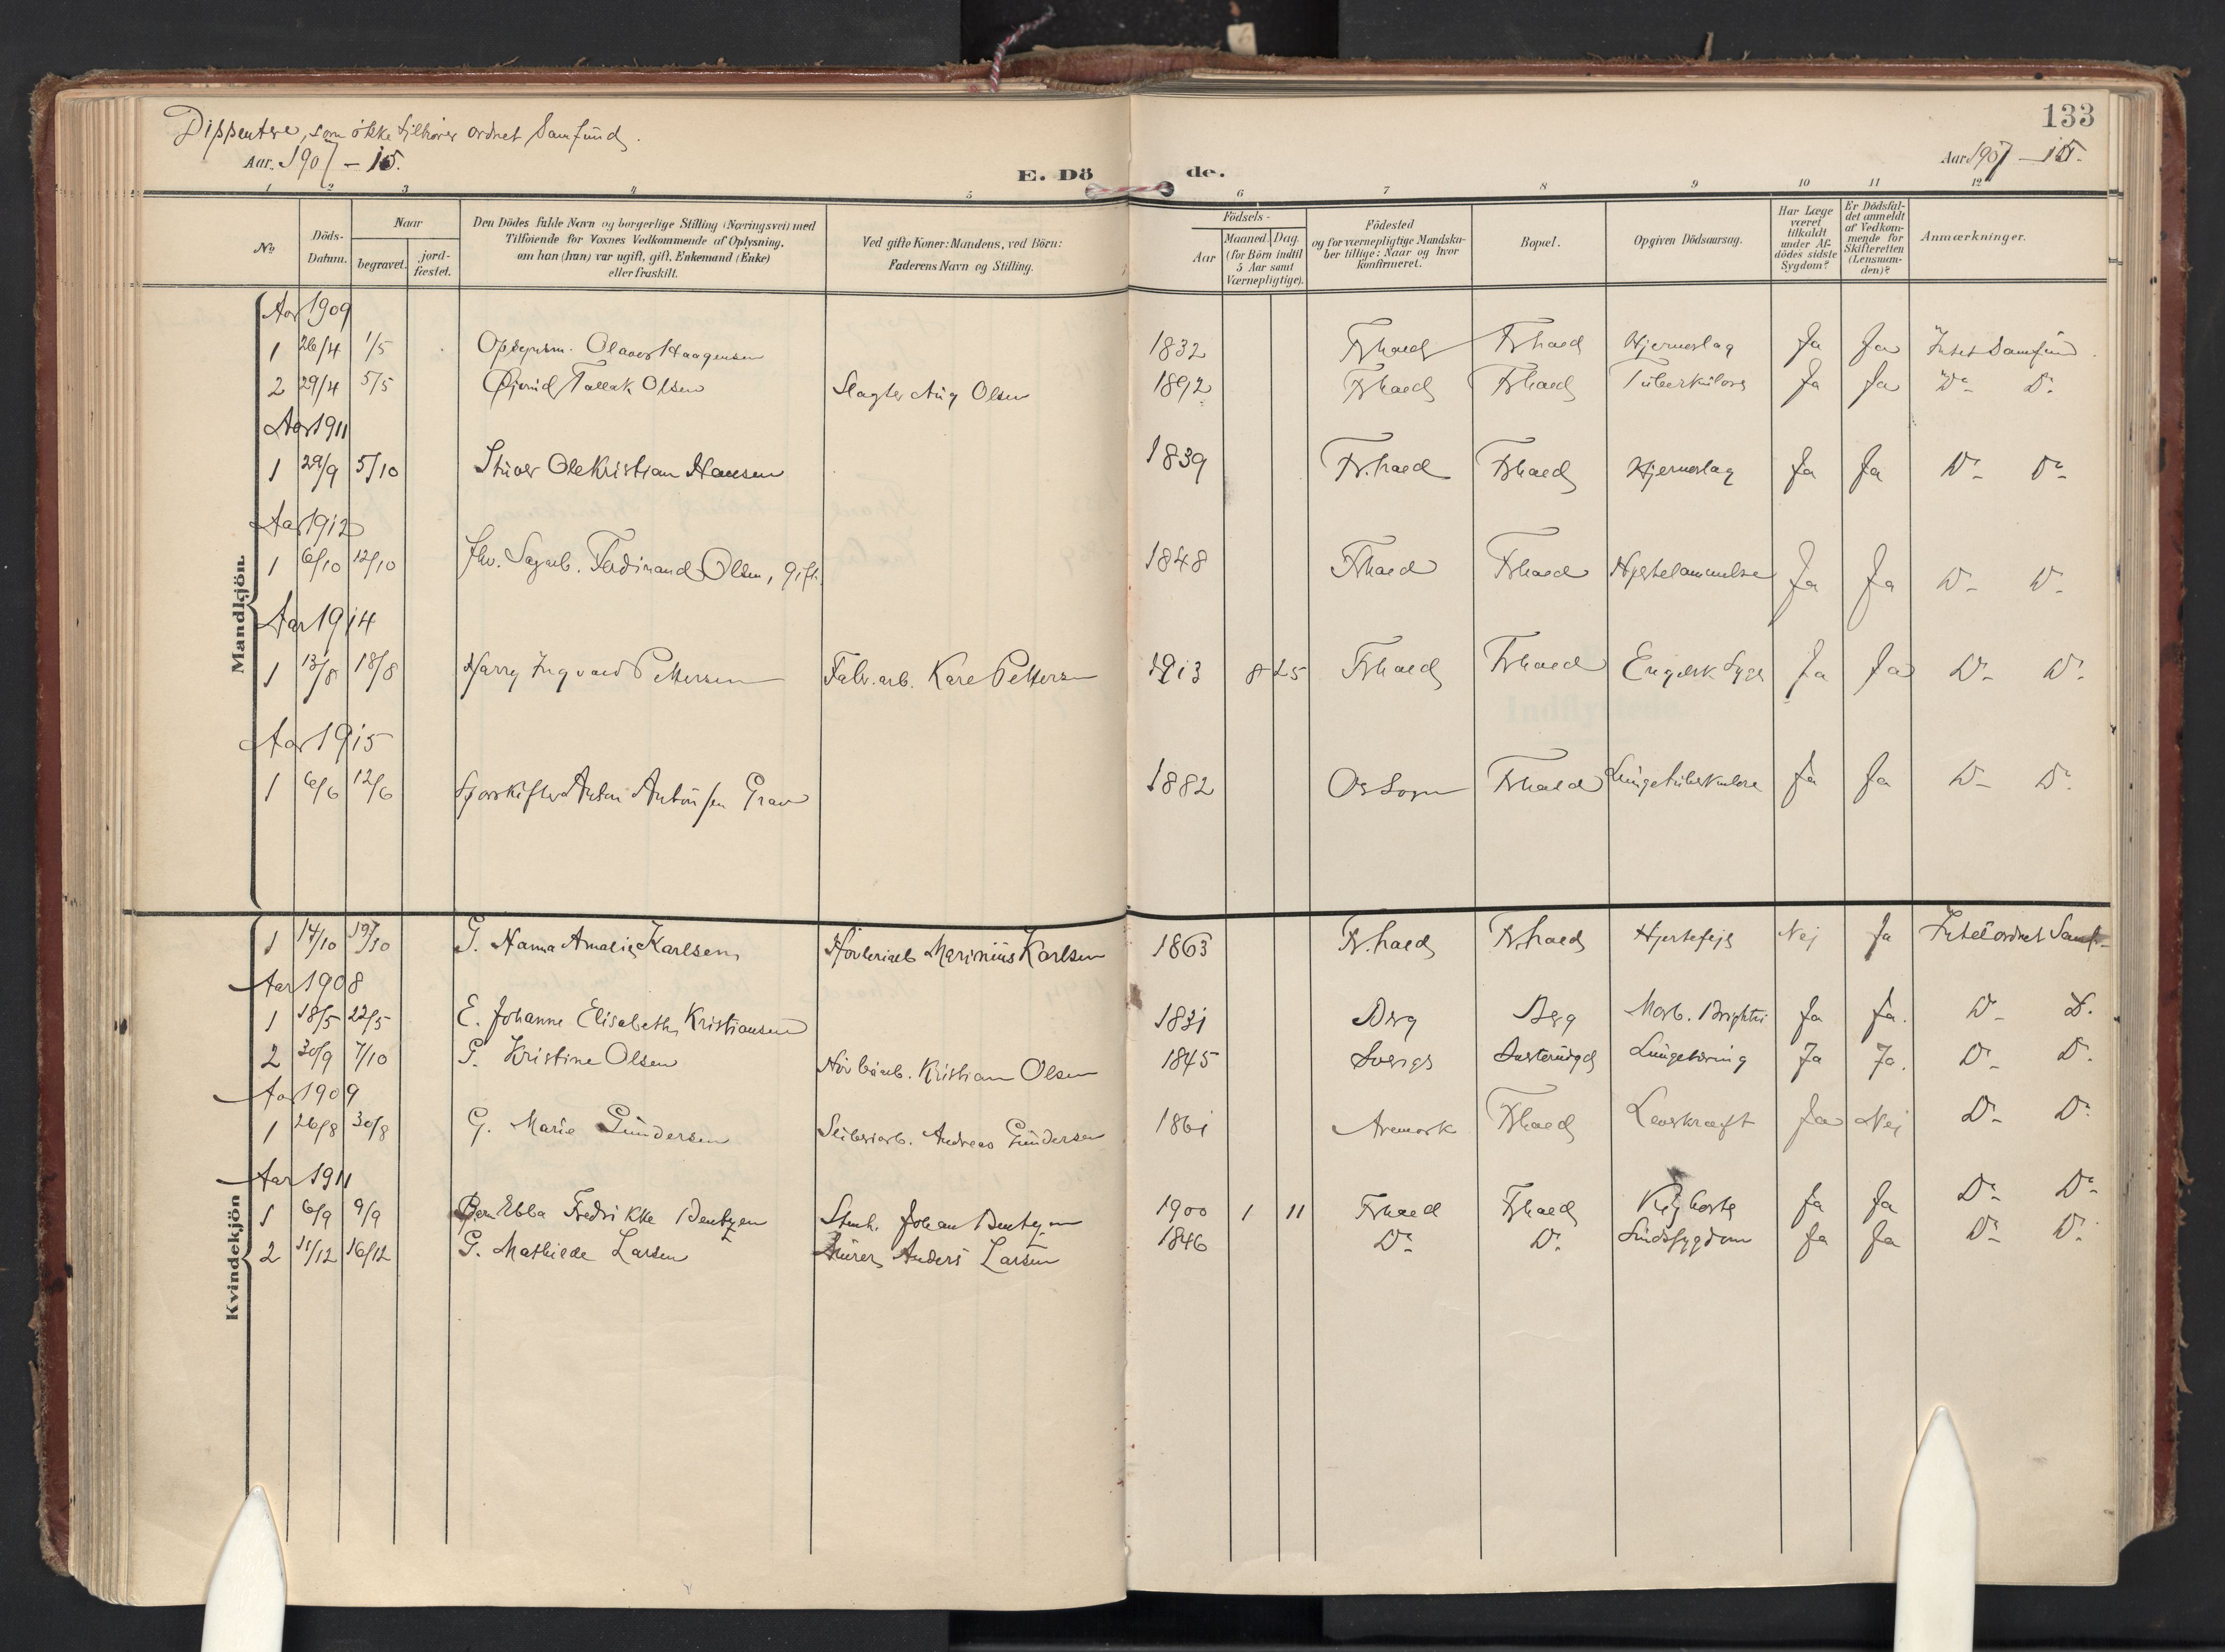 133
Dissentere, som ikke tilhører ordnet Samfund.
Aar 1907 — 15.
Aar 1907 — 15.
E. Dö de.
1 2 3 4 5 6 7 8 9 10 11 12
No
Döds-Datum.
Naar
begravet. jord-fæstet.
Den Dödes fulde Navn og borgerlige Stilling (Næringsvei) med
Tilföiende for Voxnes Vedkommende af Oplysning,
om han (hun) var ugift, gift, Enkemand (Enke)
eller fraskilt.
Ved gifte Koner: Mandens, ved Börn:
Faderens Navn og Stilling.
Födsels-
Aar Maaned. Dag.
(for Börn indtil
5 Aar samt
Værnepligtige).
Födested
og for værnepligtige Mandska-
ber tillige: Naar og hvor
konfirmeret.
Bopæl.
Opgiven Dödsaarsag.
Har Læge
været
tilkaldt
under Af-
dödes sidste
Sygdom?
Er Dödsfal-
det anmeldt
af Vedkom-
mende for
Skifteretten
(Lensman-
den)?
Anmærkninger.
Mandkjön.
Aar 1909
1 26/4 1/5 Opsynsm. Olaves Haagensen 1832 Frhald Frhald Hjerneslag Ja Ja Intet Samfund.
2 29/4 5/5 Øjvind Tallak Olsen Slagter Aug Olsen 1892 Frhald Frhald Tuberkulose Ja Ja Do Do
Aar 1911
1 29/9 5/10 Stuer Ole Kristian Hansen 1839 Fr.hald Frhald Hjerneslag Ja Ja Do Do
Aar 1912
1 6/10 12/10 Fhv. Sagarb. Ferdinand Olsen, gift. 1848 Frhald Frhald Hjertelammelse Ja Ja Do Do
Aar 1914
1 13/8 18/8 Harry Ingvald Pettersen Fabr.arb. Kare Pettersen 1913 8 25 Frhald Frhald Engelsk Syge Ja Ja Do Do
Aar 1915
1 6/6 12/6 Sporskifter Anton Antonsen Grav 1882 Os Sogn Frhald Lungetuberkulose Ja Ja Do Do
Kvindekjön
1 14/10 19/10 G. Hanna Amalie Karlsen Høvleriarb Marinius Karlsen 1863 Fr.hald Fr.hald Hjertefejl Nej Ja Intet ordnet Samf.
Aar 1908
1 18/5 22/5 E. Johanne Elisabeth Kristiansen 1831 Berg Berg Morb. Brightii Ja Ja. Do Do
2 30/9 7/10 G. Kristine Olsen Kristian Olsen 1845 Sverige Lungetæring Ja Ja. Do Do
Aar 1909
1 26/8 30/8 G. Marie Gundersen Andreas Gundersen 1861 Aremark Frhald Leverkræft Ja Nej Do Do
Aar 1911
1 6/9 9/9 Barn Ebba Fredrikke Bentzen Stenh. Johan Bentzen 1900 1 11 Frhald Frhald Kighoste Ja Ja Do Do
2 11/12 16/12 G. Mathilde Larsen Murer Anders Larsen 1846 Do Do Sindssygdom Ja Ja Do Do